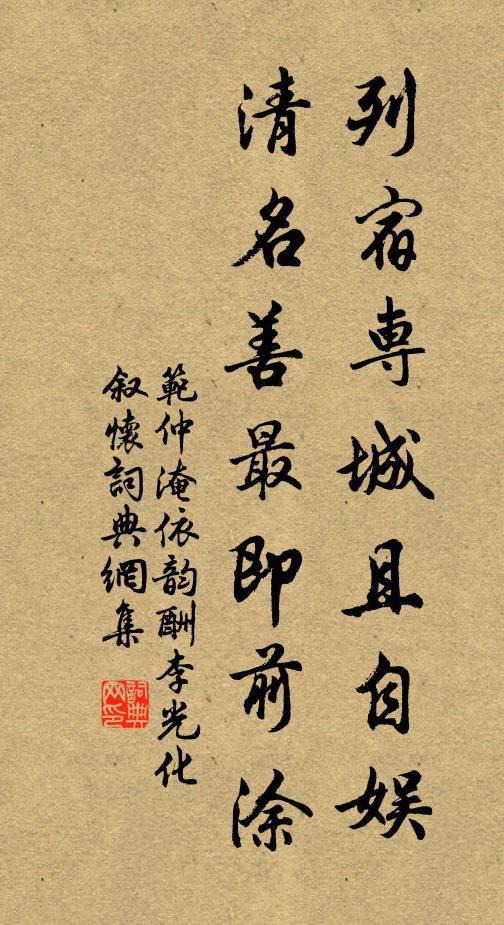 列宿専城且自娱
清名善最即前涂
範仲淹依韵酬李光化
叙懷詞典網集
詞典
网印